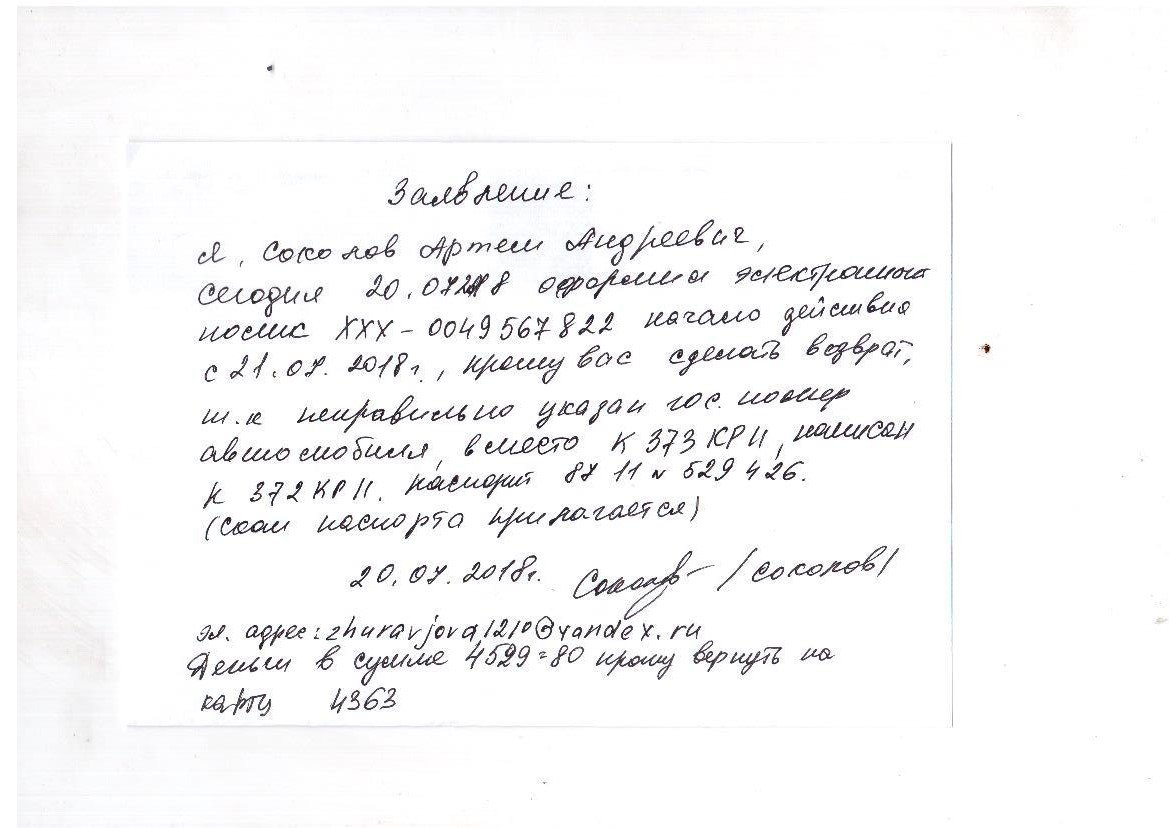 Заявление:
Я, Соколов Артем Андреевич,
сегодня 20.07.18 оформил электронный
полис ХХХ-0049567822 начало действия
с 21.07.2018г., прошу вас сделать возврат,
т.к неправильно указан гос. номер
автомобиля, вместо К 373 КР 11, написан
К 372 КР 11. паспорт 87 11 № 529 426.
(скан паспорта прилагается)
20.07.2018г. /Соколов/
эл. адрес: zhuravjova1210@yandex.ru
Деньги в сумме 4529=80 прошу вернуть на
карту 4363